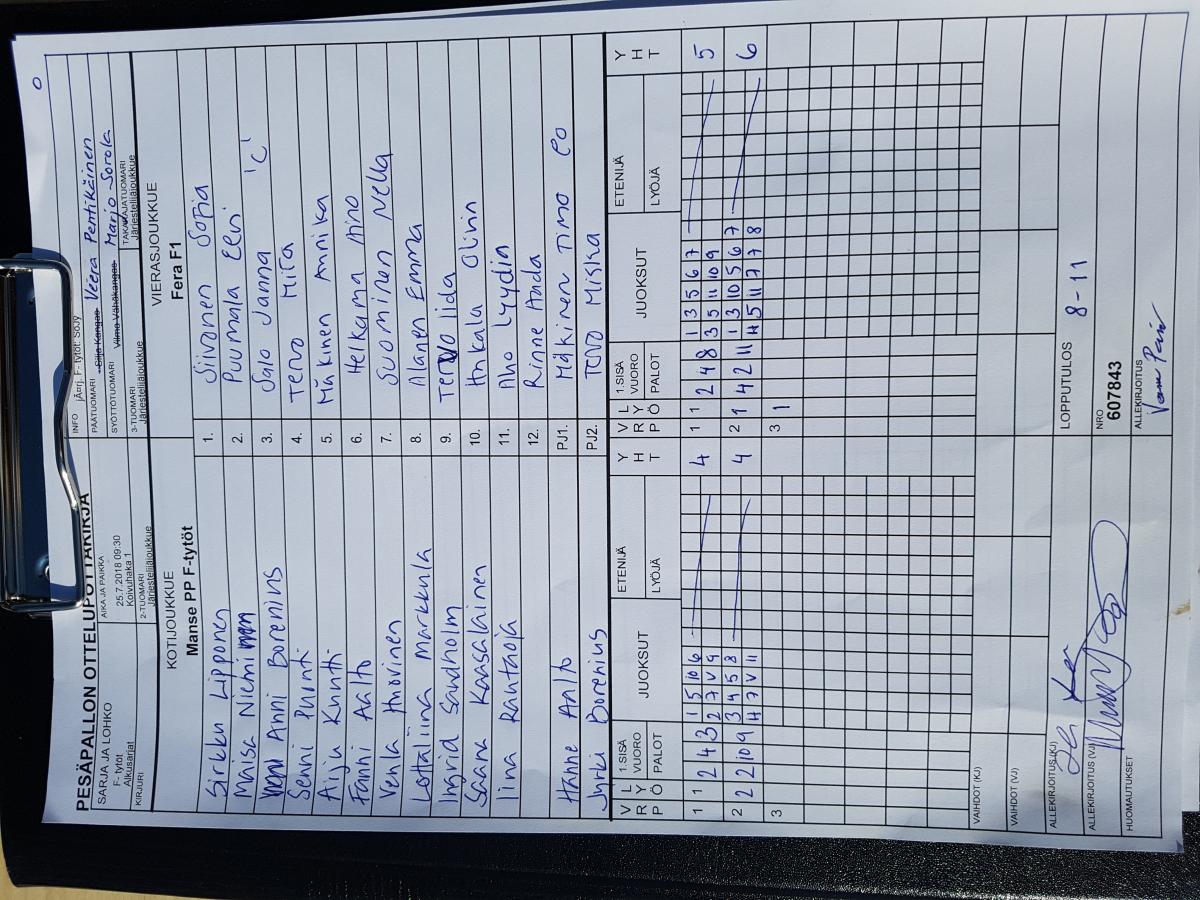 PESÄPALLON OTTELUPÖYTÄKIRJA
SARJA JA LOHKO
F- tytöt
Alkusarjat
AIKA JA PAIKKA
25.7.2018 09:30
Koivuhaka 1
INFO jÄ¤rj. F- tytöt: SoJy
PÄÄTUOMARI Silja Kangas Veera Pentikäinen
SYÖTTÖTUOMARI Vilma Vähäkangas Marjo Sorola
KIRJURI
2-TUOMARI
Järjestelijäjoukkue
3-TUOMARI
Järjestelijäjoukkue
TAKARAJATUOMARI
Järjestelijäjoukkue
KOTIJOUKKUE
Manse PP F-tytöt
VIERASJOUKKUE
Fera F1
Sirkku Lipponen 1. Siivonen Sofia
Maisa Nieminen 2. Puumala Eevi
Anni Borenius 3. Salo Janna 'C'
Senni Puonti 4. Tervo Mira
Airju Kuutti 5. Mäkinen Annika
Fanni Aalto 6. Helkama Aino
Venla Huovinen 7. Suominen Nella
Lottaliina Markkula 8. Alanen Emma
Ingrid Sandholm 9. Tervo Iida
Saana Kaasalainen 10. Hakala Oliivia
Iina Rantaoja 11. Aho Lyydia
12. Rinne Aada
Hanne Aalto PJ1. Mäkinen Timo
Jyrki Borenius PJ2. Tervo Miska
VRP LYÖ 1.SISÄ VUORO PALOT JUOKSUT ETENIJÄ LYÖJÄ YHT
VRP LYÖ 1.SISÄ VUORO PALOT JUOKSUT ETENIJÄ LYÖJÄ YHT
1 1 2 4 3 1 5 10 6 4
2 7 V 9
1 1 2 4 8 1 3 5 6 7 5
3 5 11 10 9
2 2 2 10 9 3 4 5 8 4
4 7 V 11
2 1 4 2 11 1 3 10 5 6 7 6
4 5 11 7 7 8
3
3 1
VAIHDOT (KJ)
VAIHDOT (VJ)
ALLEKIRJOITUS (KJ)
LOPPUTULOS 8-11
ALLEKIRJOITUS (VJ)
NRO
607843
HUOMAUTUKSET
ALLEKIRJOITUS